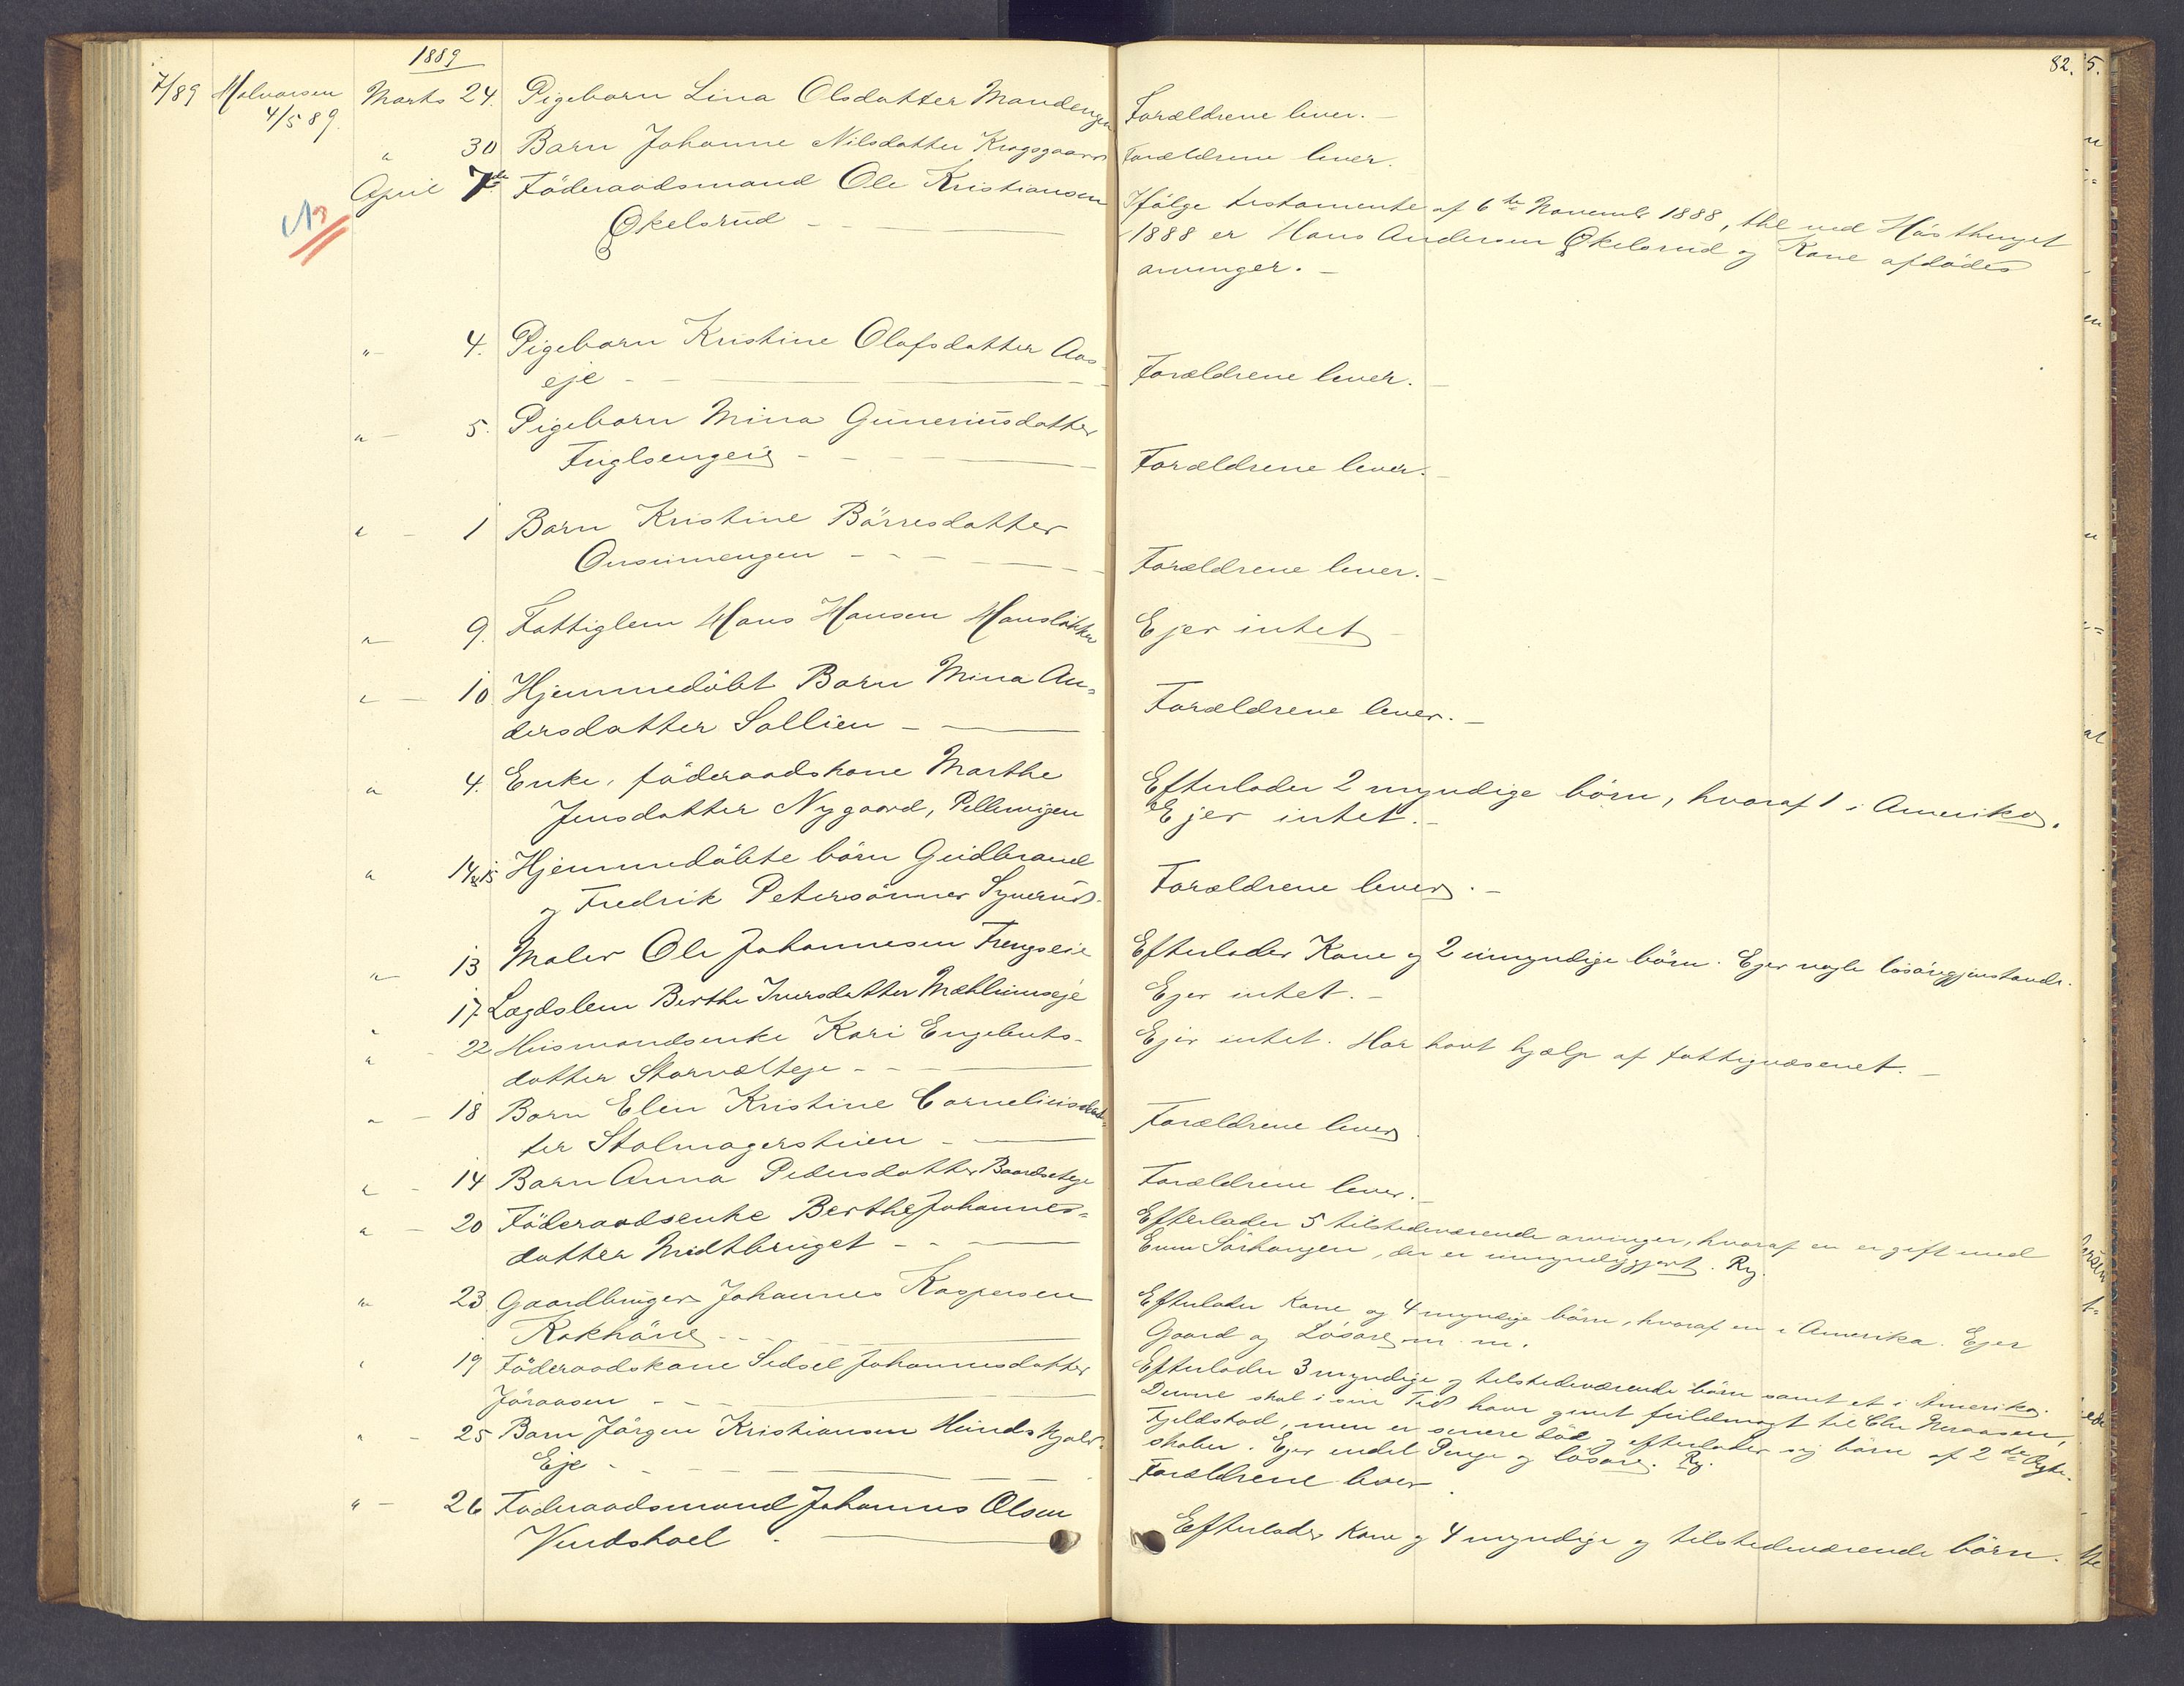 1889
82.
7/89 Halvorsen Marts 24. Pigebarn Lina Olsdatter Mandengen Forældrene lever. —
4/5 89.
" 30 Barn Johanne Nilsdatter Krogsgaard Forældrene lever.
April 7de Föderaadsmand Ole Kristiansen
Økelsrud — —
Ifölge testamente af 6te Novemb 1888, thl ved Hösthinget
1888 er Hans Andersen Økelsrud og Kone afdödes
arvinger. —
N3
" — 4. Pigebarn Kristine Olafsdatter Aas
eje — Forældrene lever. —
" — 5. Pigebarn Mina Guneriusdatter
Fuglsengeie — Forældrene lever. —
" — 1 Barn Kristine Börresdatter
Onsumengen — Forældrene lever. —
" — 9. Fattiglem Hans Hansen Hanslökken Ejer intet —
" — 10 Hjemmedöbt Barn Mina An-
dersdatter Sollien — Forældrene lever. —
" 4. Enke, föderaadskone Marthe
Jensdatter Nygaard, Pellervigen
Efterlader 2 myndige börn, hvoraf 1 i Amerika.
Ejer intet. —
" 14 & 15 Hjemmedöbte börn Gudbrand
og Fredrik Petersönner Syverud. Forældrene lever. —
" — 13 Maler Ole Johannesen Frengseie Efterlader Kone og 2 umyndige börn. Ejer nogle lösöregjenstande.
" 17. Lægdslem Berthe Iversdatter Mæhlumseje Ejer intet. —
" — 22 Husmandsenke Kari Engebrets-
datter Storvælteje — Ejer intet. Har havt hjælp af fattigvæsenet. —
" — 18 Barn Elen Kristine Corneliusdat-
ter Stolmagerstuen — Forældrene lever.
" — 14 Barn Anna Pedersdatter Baardseteje Forældrene lever. —
" — 20 Föderaadsenke Berthe Johannes-
datter Midtbruget —
Efterlader 5 tilstedeværende arvinger, hvoraf en er gift med
Even Sörhaugen, der er umyndiggjort. Rg.
" 23. Gaardbruger Johannes Kaspersen
Rokhöne —
Efterlader Kone og 4 myndige börn, hvoraf en i Amerika. Ejer
Gaard og Lösöre m. m.
" 19 Föderaadskone Sidsel Johannesdatter
Jöraasen —
Efterlader 3 myndige og tilstedeværende börn samt et i Amerika.
Denne skal i sin Tid have givet fuldmagt til Chr
Fjeldstad, men er senere död og efterlader sig börn af 2de Ægte-
skaber. Ejer endel Penge og lösöre. Rg.
" — 25 Barn Jörgen Kristiansen Hundskjold
Eje — Forældrene lever.
" — 26 Föderaadsmand Johannes Olsen
Vindshoel — Efterlader Kone og 4 myndige og tilstedeværende börn.